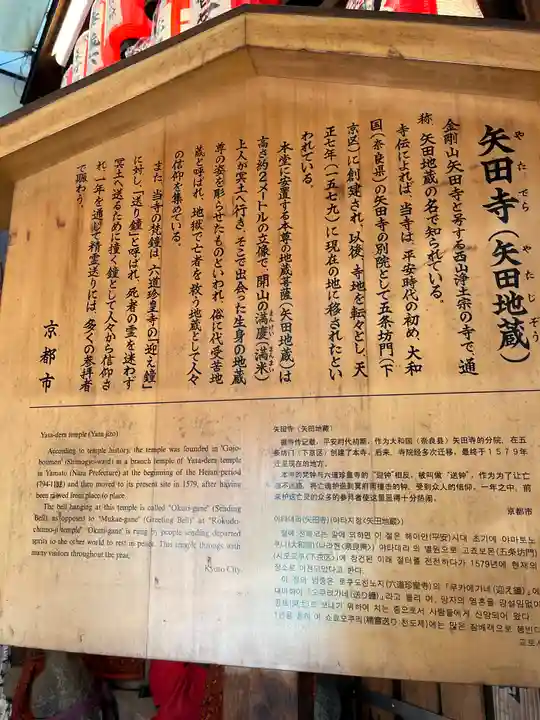 矢田寺(矢田地蔵)
やたでら やたじぞう
金剛山矢田寺と号する西山浄土宗の寺で、通
称 矢田地蔵の名で知られている。
寺伝によれば、当寺は、平安時代の初め、大和
国(奈良県)の矢田寺の別院として五条坊門(下
京区)に創建され、以後、寺地を転々とし、天
正七年(一五七九)に現在の地に移されたとい
われている。
本堂に安置する本尊の地蔵菩薩(矢田地蔵)は
高さ約2メートルの立像で、開山の満慶(満米)
まんけい まんまい
上人が冥土へ行き、そこで出会った生身の地蔵
尊の姿を彫らせたものといわれ、俗に代受苦地
蔵と呼ばれ、地獄で亡者を救う地蔵として人々
の信仰を集めている。
また、当寺の梵鐘は、六道珍皇寺の「迎え鐘」
に対し、「送り鐘」と呼ばれ、死者の霊を迷わず
冥土へ送るために撞く鐘として人々から信仰さ
れ、一年を通じて精霊送りには、多くの参拝者
で賑わう。
京都市
Yata-dera temple (Yata jizo)
According to temple history, the temple was founded in "Gojo-
bomon" (Shimogyo-ward) as a branch temple of Yata-dera temple
in Yamato (Nara Prefecture) at the beginning of the Heian-period
(794-1185) and then moved to its present site in 1579, after having
been moved from place to place.
The bell hanging at this temple is called "Okuri-gane" (Sending
Bell) as opposed to "Mukae-gane" (Greeting Bell) at "Rokudo-
chinno-ji temple". "Okuri-gane" is rung by people sending departed
spirits to the other world to rest in peace. This temple throngs with
many visitors throughout the year.
Kyoto City
矢田寺(矢田地藏)
据寺传记载,平安时代初期,作为大和国(奈良县)矢田寺的分院,在五
条坊门(下京区)创建了本寺。后来,寺院经多次迁移,最终于1579年
迁至现在的地方。
本寺的梵钟与六道珍皇寺的“迎钟”相反,被叫做“送钟”,作为为了让亡
魂不迷路,将亡魂护送到冥府而撞击的钟,受到众人的信仰。一年之中,前
来护送亡灵的众多的参拜者使这里显得十分热闹。
京都市
야타데라(矢田寺)(야타지장<矢田地藏>)
절에 전해오는 말에 의하면 이 절은 헤이안(平安)시대 초기에 야마토노
쿠니(大和国)(나라현<奈良県>) 야타데라 의 별원으로 고죠보몬(五条坊門)
(시모교쿠<下京区>)에 창건된 이래 절터를 전전하다가 1579년에 현재의
장소로 이전되었다고 한다.
이 절의 범종은 로쿠도친노지(六道珍皇寺)의 「무카에가네(迎え鐘)」에
대비하여 「오쿠리가네(送り鐘)」라고 불리 며, 망자의 영혼을 망설임없이
명토(冥土)로 보내기 위하여 치는 종으로서 사람들에게 신앙되어 왔다.
1년을 통하 여 쇼료오쿠리(精霊送り:천도제)에는 많은 참배객으로 붐빈다.